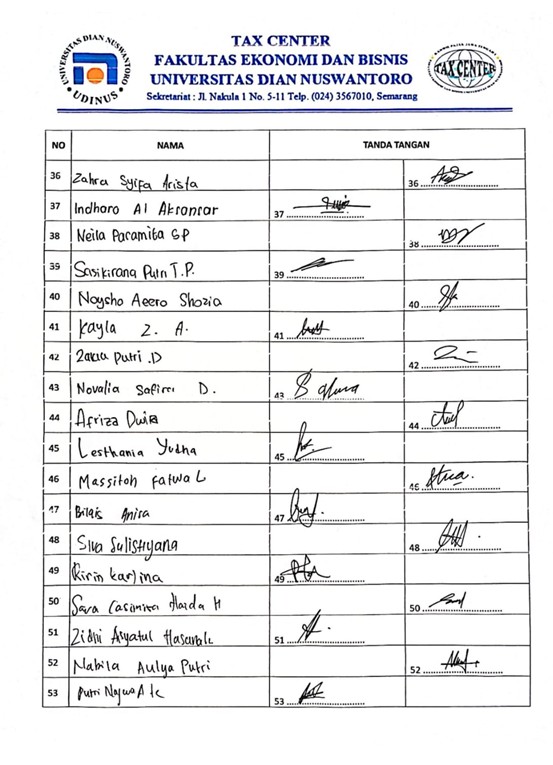 TAX CENTER
FAKULTAS EKONOMI DAN BISNIS
UNIVERSITAS DIAN NUSWANTORO
Sekretariat : Jl. Nakula 1 No. 5-11 Telp. (024) 3567010, Semarang
UNIVERSITAS DIAN NUSWANTORO
UDINUS
TAX CENTER
NO NAMA TANDA TANGAN
36 Zahra Syifa Arista 36
37 Indhoro Al 37
38 Neila Paramita GP 38
39 Sasikirana Putri T.P. 39
40 Naysho Aeero Shozia 40
41 Kayla Z. A. 41
42 Zakia Putri .D 42
43 Novalia Safira D. 43
44 Afriza Dwira 44
45 Lesthania Yudha 45
46 Massitoh Fatwa L 46
47 Bilqis Anisa 47
48 Siva Sulistiyana 48
49 Ririn Karlina 49
50 Sava Casimira H 50
51 Zidni Asyatul 51
52 Nabila Aulya Putri 52
53 Putri Najwa A K 53